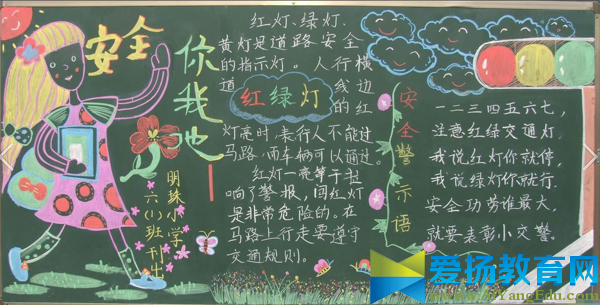 安全
你我他
明珠小学
六(1)班刊出
红灯、绿灯、
黄灯是道路安全
的指示灯。人行横
道
线边
红绿灯
的红
灯亮时,表行人不能过
马路,而车辆可以通过。
红灯一亮等于拉
响了警报,闯红灯
是非常危险的。在
马路上行走要遵守
交通规则。
安全警示语
一二三四五六七,
注意红绿交通灯。
我说红灯你就停,
我说绿灯你就行。
安全功劳谁最大,
就要表彰小交警。
爱扬教育网
www.iYangEdu.com